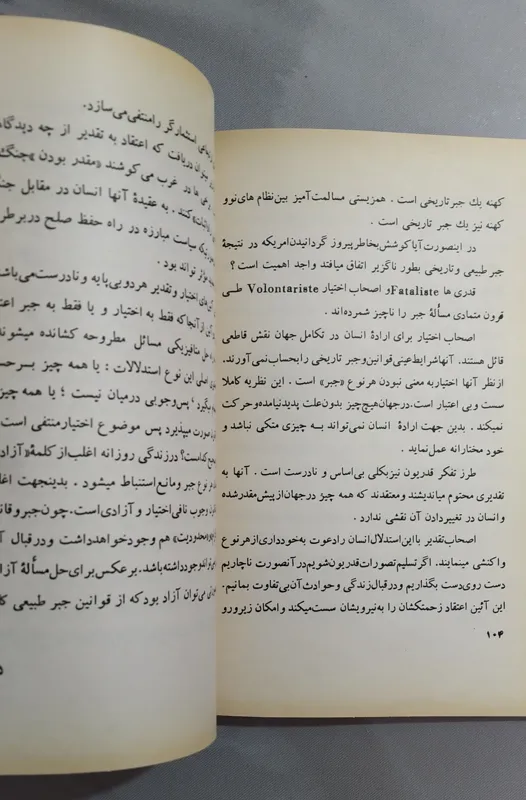 کهنه یك جبر تاریخی است . همزیستی مسالمت آمیز بین نظام های نو و
کهنه نیز یك جبر تاریخی است .
در اینصورت آیا کوشش بخاطر پیروز گردانیدن امریکه در نتیجهٔ
جبر طبیعی و تاریخی بطور ناگزیر اتفاق میافتد واجد اهمیت است ؟
قدری ها Fataliste و اصحاب اختیار Volontariste طی
قرون متمادی مسألهٔ جبر را ناچیز شمرده‌اند .
اصحاب اختیار برای ارادهٔ انسان در تکامل جهان نقش قاطعی
قائل هستند. آنها شرایط عینی قوانین و جبر تاریخی را بحساب نمی‌آورند.
از نظر آنها اختیار به معنی نبودن هر نوع «جبر» است . این نظریه کاملا
سست و بی اعتبار است، در جهان هیچ چیز بدون علت پدید نیامده و حرکت
نمیکند . بدین جهت ارادهٔ انسان نمی‌تواند به چیزی متکی نباشد و
خود مختارانه عمل نماید .
طرز تفکر قدریون نیز بکلی بی‌اساس و نادرست است . آنها به
تقدیری محتوم میاندیشند و معتقدند که همه چیز در جهان از پیش مقدر شده
و انسان در تغییر دادن آن نقشی ندارد .
اصحاب تقدیر با این استدلال انسان را دعوت به خودداری از هر نوع
واکنشی مینمایند. اگر تسلیم تصورات قدریون شویم در آنصورت ناچاریم
دست روی دست بگذاریم و در قبال زندگی و حوادث آن بی‌تفاوت بمانیم .
این آئین اعتقاد زحمتکشان را به نیرویشان سست میکند و امکان زیر و رو
۱۰۴
استثمارگر را منتفی می‌سازد.
دریافت که اعتقاد به تقدیر از چه دیدگاه
ها در غرب می کوشند «مقدر بودن جنگ
کنند . به عقیدهٔ آنها انسان در مقابل جنگ
سیاست مبارزه در راه حفظ صلح در برطر
تواند بود .
های اختیار و تقدیر هر دو بی پایه و نادرست می‌باش
از آنجا که فقط به اختیار و یا فقط به جبر اعت
متافیزیکی مسائل مطروحه کشانده میشوند
اصلی این نوع استدلالات : یا همه چیز بر حس
میگیرد ، پس وجوبی درمیان نیست ؛ یا همه چیز
صورت میپذیرد پس موضوع اختیار منتفی است
است؟ در زندگی روزانه اغلب از کلمهٔ «آزاد
نوع جبر و مانع استنباط میشود . بدینجهت اغل
وجوب نافی اختیار و آزادی است. چون جبر و قان
محدودیت» هم وجود خواهد داشت و در قبال آ
وجود داشته باشد. بر عکس برای حل مسألهٔ آزا
می‌توان آزاد بود که از قوانین جبر طبیعی کا
۵